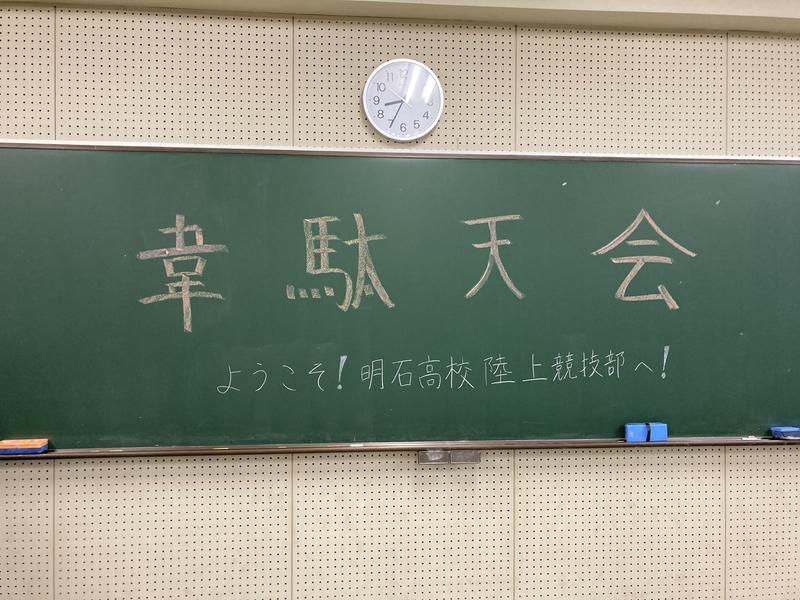 12
11
10
9
8
7
6
5
4
3
韋駄天会
ようこそ！明石高校陸上競技部へ！